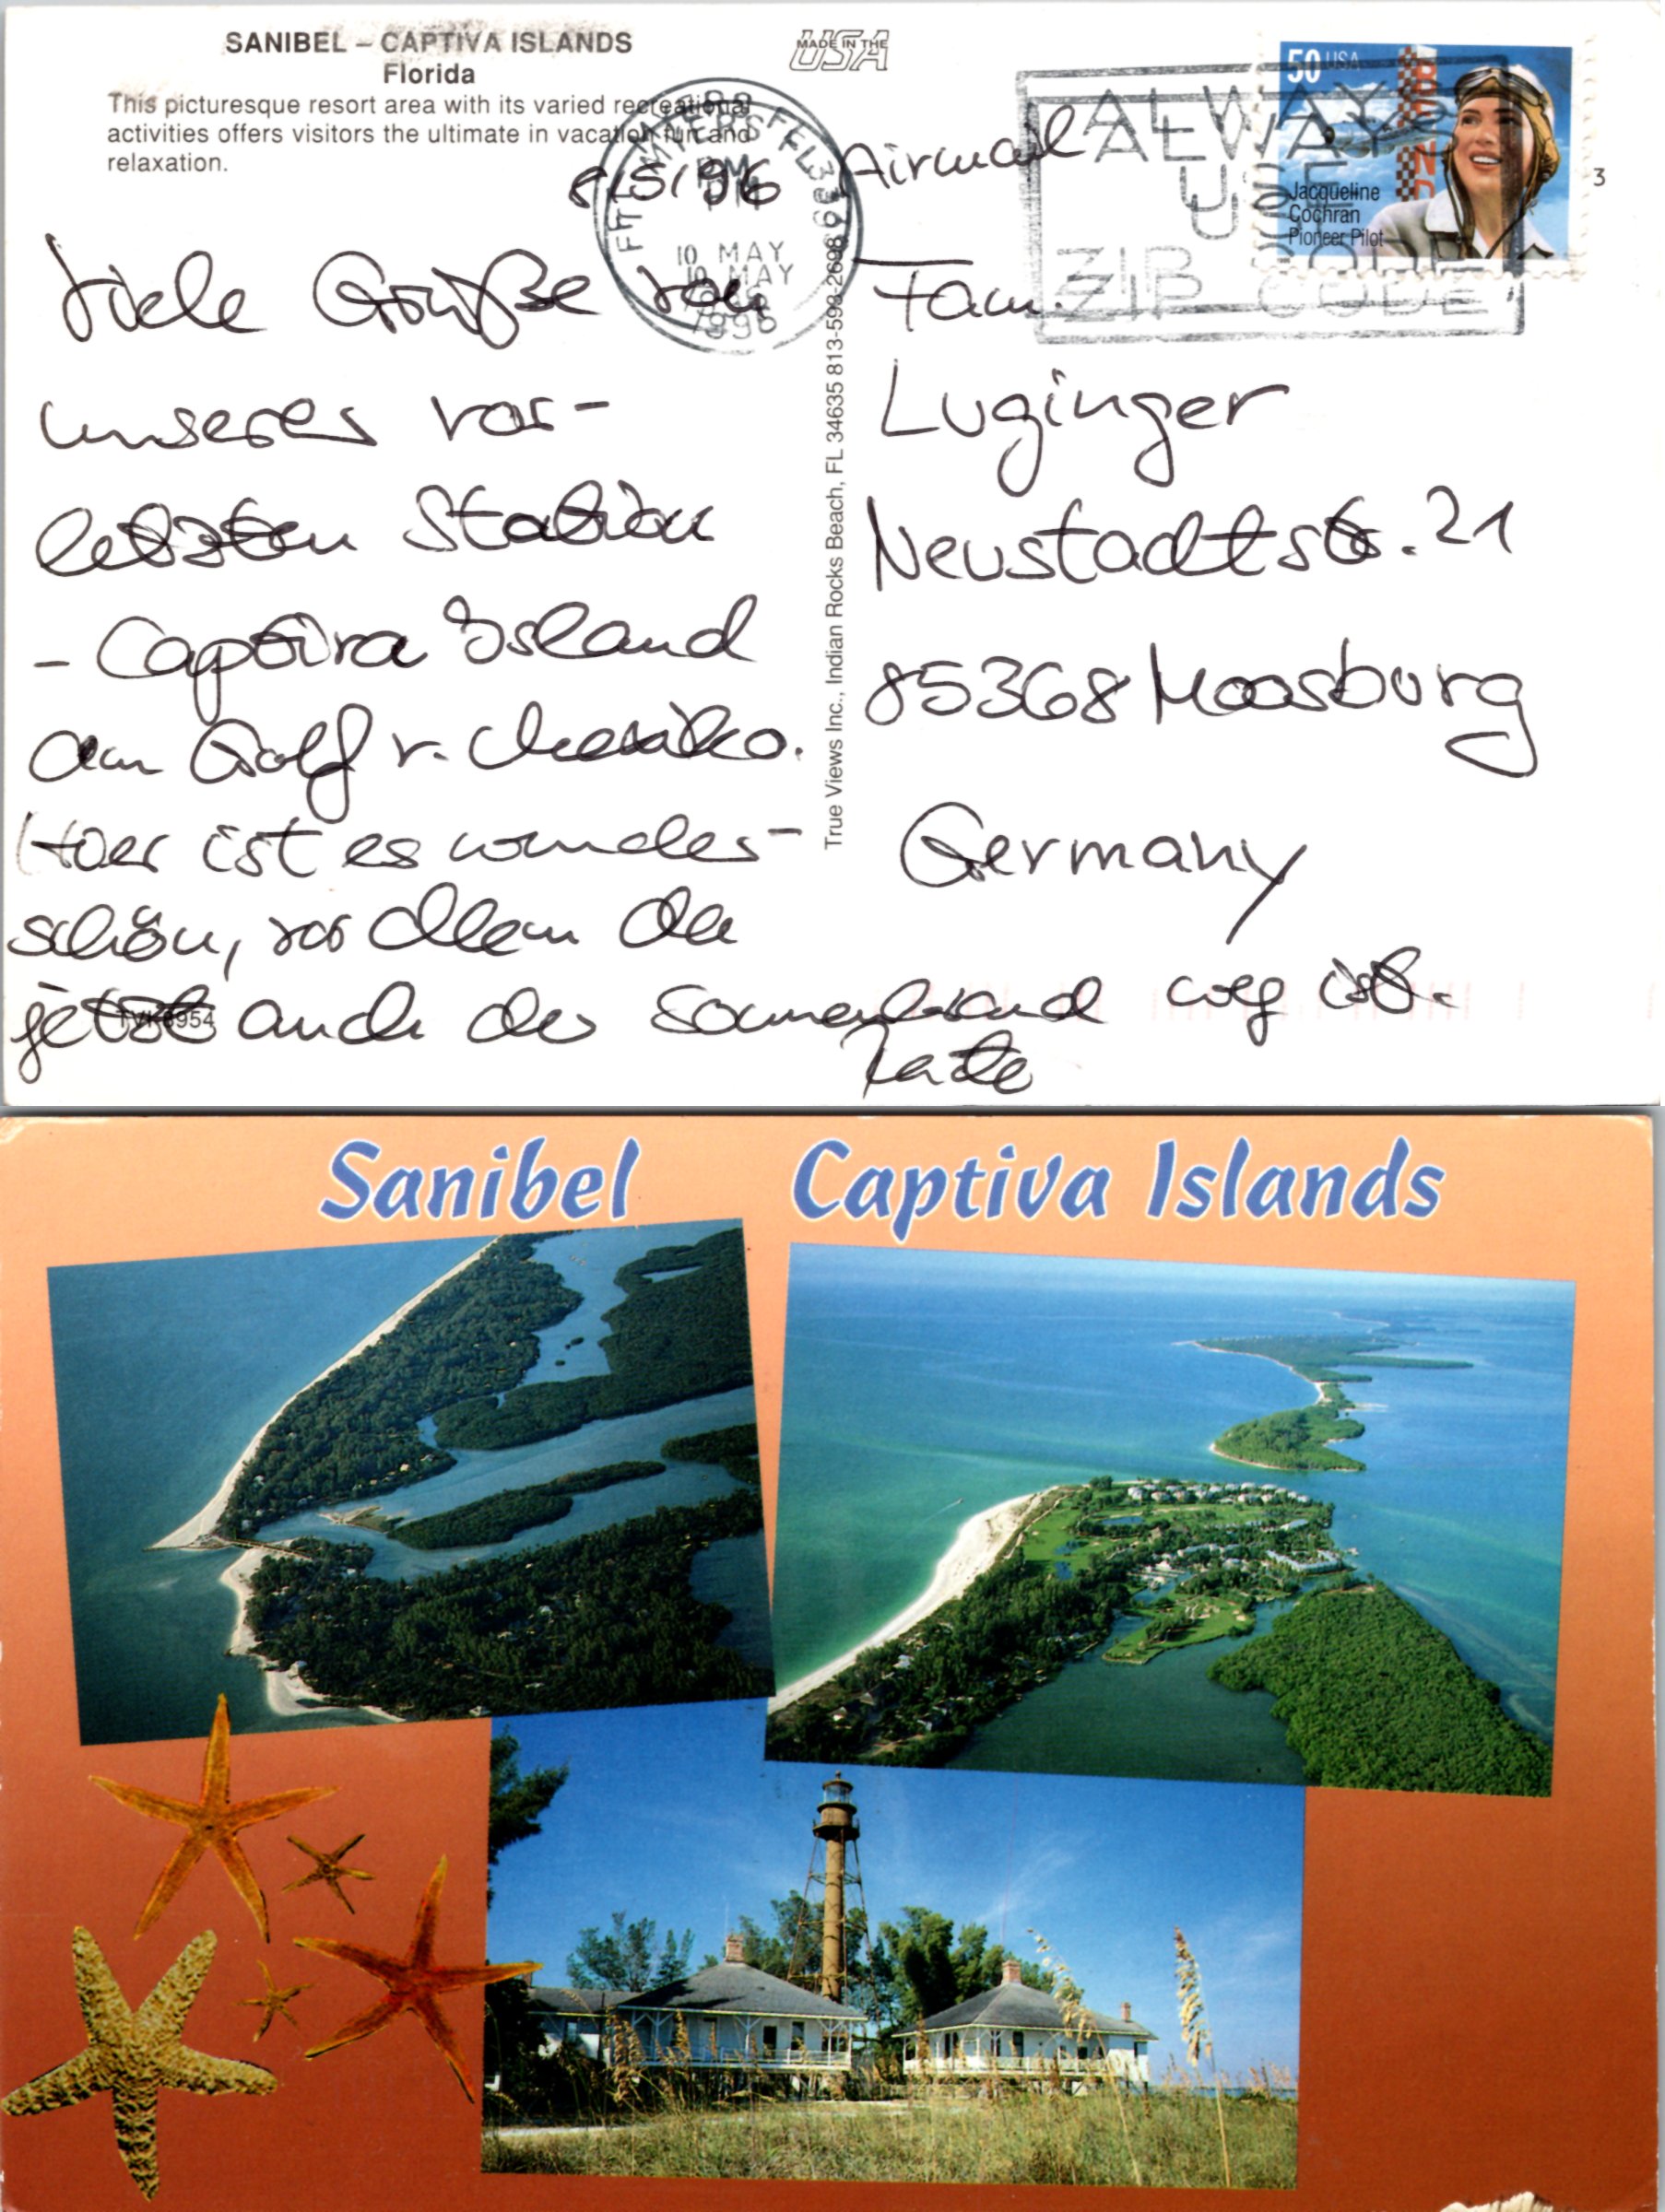 SANIBEL – CAPTIVA ISLANDS
Florida
This picturesque resort area with its varied recreational
activities offers visitors the ultimate in vacation fun and
relaxation.
MADE IN THE
USA
FT MYERS FL 339
PM
10 MAY
1996
ALWAYS
USE
ZIP CODE
50 USA
Jacqueline
Cochran
Pioneer Pilot
3
8/5/96
Airmail
Viele Grüße von
unserer vor-
letzten Station
- Captiva Island
am Golf v. Mexiko.
Hier ist es wunder-
schön, vor allem da
jetzt auch der Sonnenbrand weg ist.
Fam.
Luginger
Neustadtstr. 21
85368 Moosburg
Germany
True Views Inc., Indian Rocks Beach, FL 34635 813-593-2698
Sanibel Captiva Islands